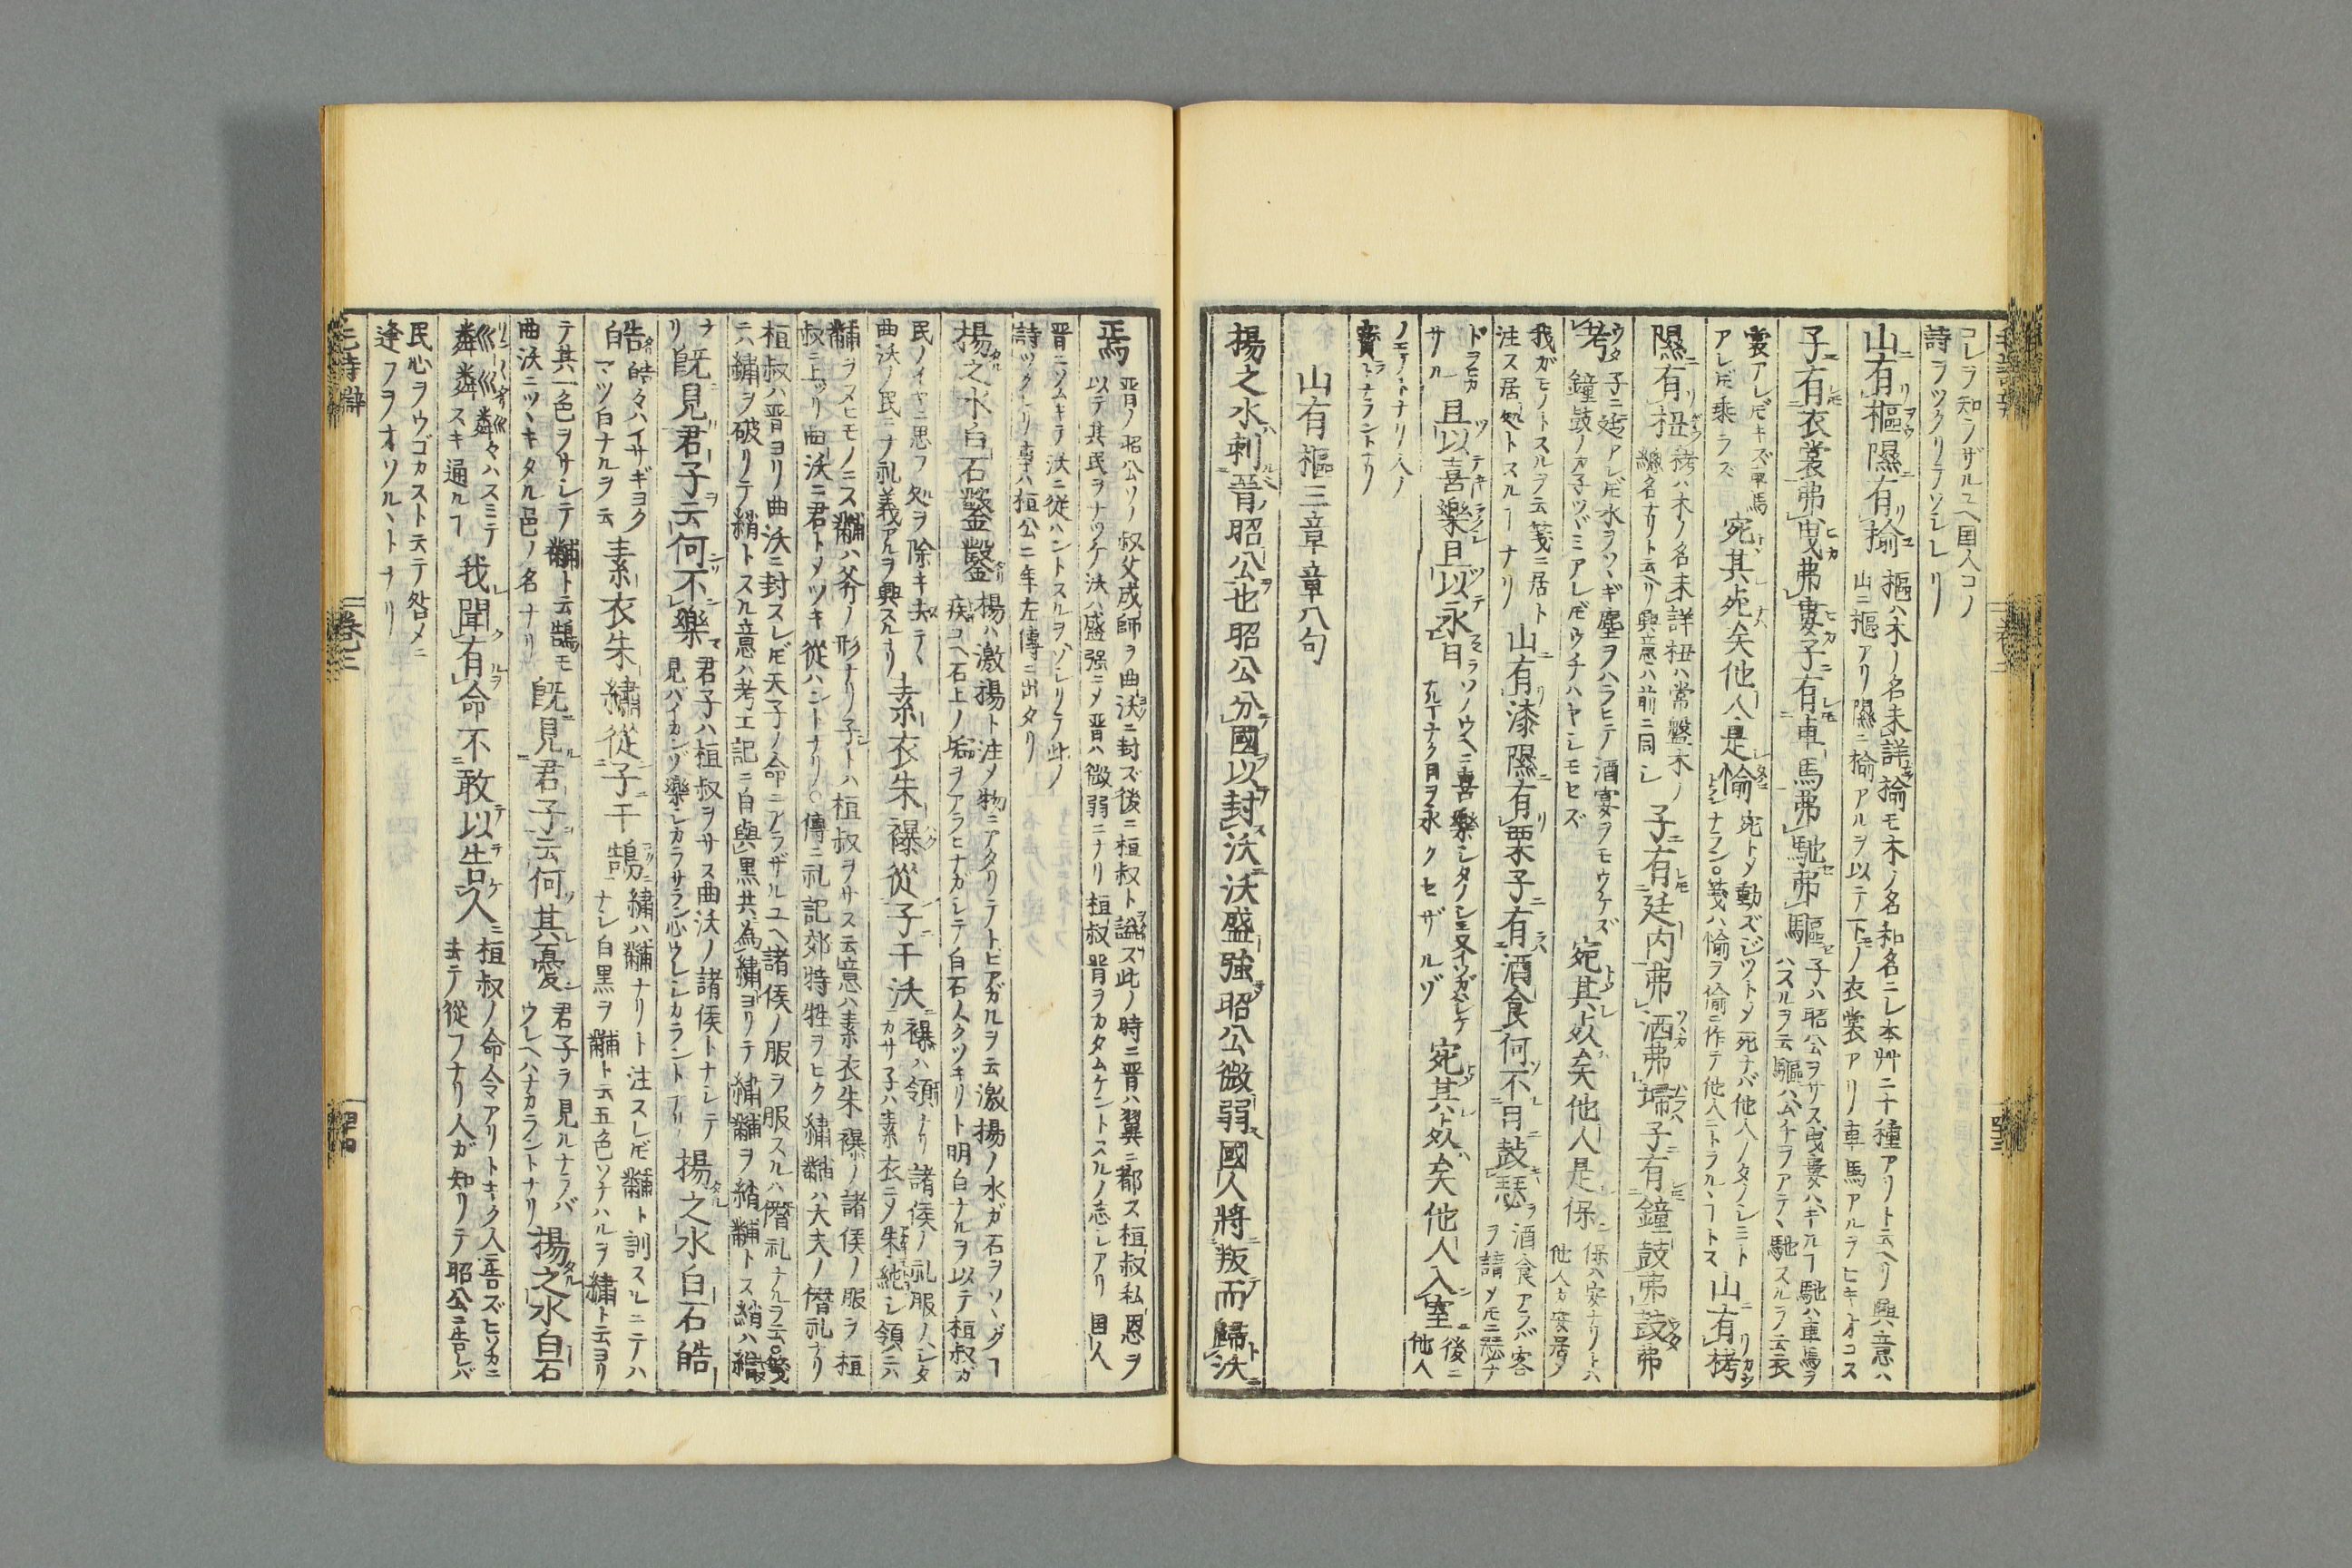 コレラ知ンザルユヘ国人コノ
詩ヲツクリテソシレリ
山有樞隰有揄
樞ハ木ノ名未詳揄モ木ノ名和名ニレ本艸ニ十種アリト云ヘリ興意ハ
山ニ樞アリ隰ニ揄アルヲ以テ下ノ衣裳アリノ車馬アルヲヒキオコス
子有衣裳弗曳弗婁子有車馬弗馳弗驅
子ハ昭公ヲサス曳婁ハキルヿ馳ハ車馬ヲ
ハスルヲ云驅ハムチヲアテヽ馳スルヲ云衣
裳アレ𪜈キズ車馬
アレ𪜈乘ラズ
宛其死矣他人是愉
宛トメ動ズジツトメ死ナバ他人ノタノシミト
ナラン○箋ハ愉ヲ偷ニ作テ他人ニトラルヽトス
山有栲
隰有杻
栲ハ木ノ名未詳杻ハ常盤木ノ
名ナリト云ヘリ興意ハ前ニ同シ
子有廷内弗洒弗埽子有鐘鼓弗鼓弗
考
子ニ廷アレ𪜈水ヲソヽギ塵ヲハラヒテ酒宴ヲモウケズ
鐘鼓ノカ子ツヾミアレ𪜈ウチハヤシモセズ
宛其死矣他人是保
保ハ安ナリトハ
他人ガ安居ノ
我ガモノトスルヲ云箋ニ居ト
注ス居処トスルヿナリ
山有漆隰有栗子有酒食何不日鼓瑟
酒食アラバ客
ヲ請メ𪜈ニ瑟ナ
ドヲヒカ
サル
且以喜樂且以永日
ソノウヘニ喜樂シタノシミ
ナクナク日ヲ永クセザルゾ
宛其死矣他人入室
後ニ
他人
ノモノトナリ人ノ
寶トナラントナリ
山有樞三章章八句
揚之水刺晉昭公也昭公分國以封沃沃盛強昭公微弱國人將叛而歸沃
焉
晋ノ昭公ソノ叔父成師ヲ曲沃ニ封ズ後ニ桓叔ト謚ス此ノ時ニ晋ハ翼ニ都ス桓叔私恩ヲ
以テ其民ヲナツケ沃ハ盛强ニメ晋ハ微弱ニナリ桓叔晋ヲカタムケントスルノ志シアリ国人
晋ニソムキテ沃ニ從ハントスルヲソシリテ此ノ
詩ツクレリ事ハ桓公二年左傳ニ出タリ
揚之水白石鑿鑿
揚ハ激揚ト注メ物ニアタリテトビアガルヲ云激揚ノ水ガ石ヲソヽグヿ
疾コヘ石上ノ垢ヲアラヒナガシテ白石スクツキリト明白ナルヲ以テ桓叔ガ
民ノイヤニ思フ処ヲ除キ去テ
曲沃ノ民ニナ礼義アルヲ興スルナリ
素衣朱襮從子于沃
襮ハ領ナリ諸侯ノ礼服ノハシタ
カサ子ハ素衣ニメ朱純シ領ニハ
黼ヲヌヒモノニス黼ハ斧ノ形ナリ子トハ桓叔ヲサス云意ハ素衣朱襮ノ諸侯ノ服ヲ桓
叔ニ上ツリ曲沃ニ君トメツキ從ハントナリ○傳ニ礼記郊特牲ヲヒク繡黼ハ大夫ノ僭礼ナリ
桓叔ハ晋ヨリ曲沃ニ封スレ𪜈天子ノ命ニアラザルユヘ諸侯ノ服ヲ服スルハ僭礼ナルヲ云○箋
ニハ繡ヲ破リテ綃トスル意ハ考工記ニ白與黒共為繡ヨリテ繡黼ヲ綃黼トス綃ハ
ナ
リ
旣見君子云何不樂
君子ハ桓叔ヲサス曲沃ノ諸侯トナシテ
見バイカンゾ樂シカラサラン心ウレシカラントナリ
揚之水白石皓
皓
皓々ハイサギヨク
マツ白ナルヲ云
素衣朱繡從子于鵠
繡ハ黼ナリト注スレ𪜈黼ト訓スルニテハ
ナシ白黒ヲ黼ト云五色ソナハルヲ繡ト云ヨリ
テ其一色ヲサシテ黼ト云鵠モ
曲沃ニツヽキタル邑ノ名ナリ
旣見君子云何其憂
君子ヲ見ルナラバ
ウレヘハナカラントナリ
揚之水白石
粼粼
粼々ハスミテ
スキ通ルヿ
我聞有命不敢以告人
桓叔ノ命令アリトキク人ニ告ズヒソカニ
去テ從フナリ人ガ知リテ昭公ニ告レバ
民心ヲウゴカスト云テ咎メニ
逢フヲオソルヽトナリ
毛詩辯
巻之三
四十四